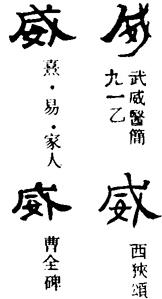 威
武威醫簡
九一乙
威
熹·易·家人
威
西狹頌
威
曹全碑